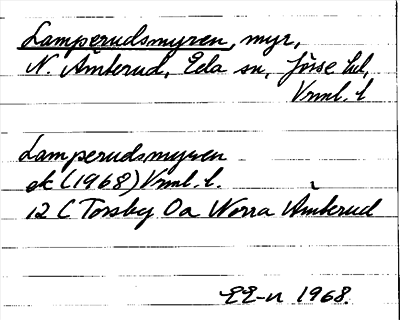 Lamperudsmyren, myr,
N. Åmberud, Eda sn, Jösse hd,
Vrml. l
Lamperudsmyren
ek (1968) Vrml. l.
12 C Torsby Oa Norra Åmberud
EE-n 1968.